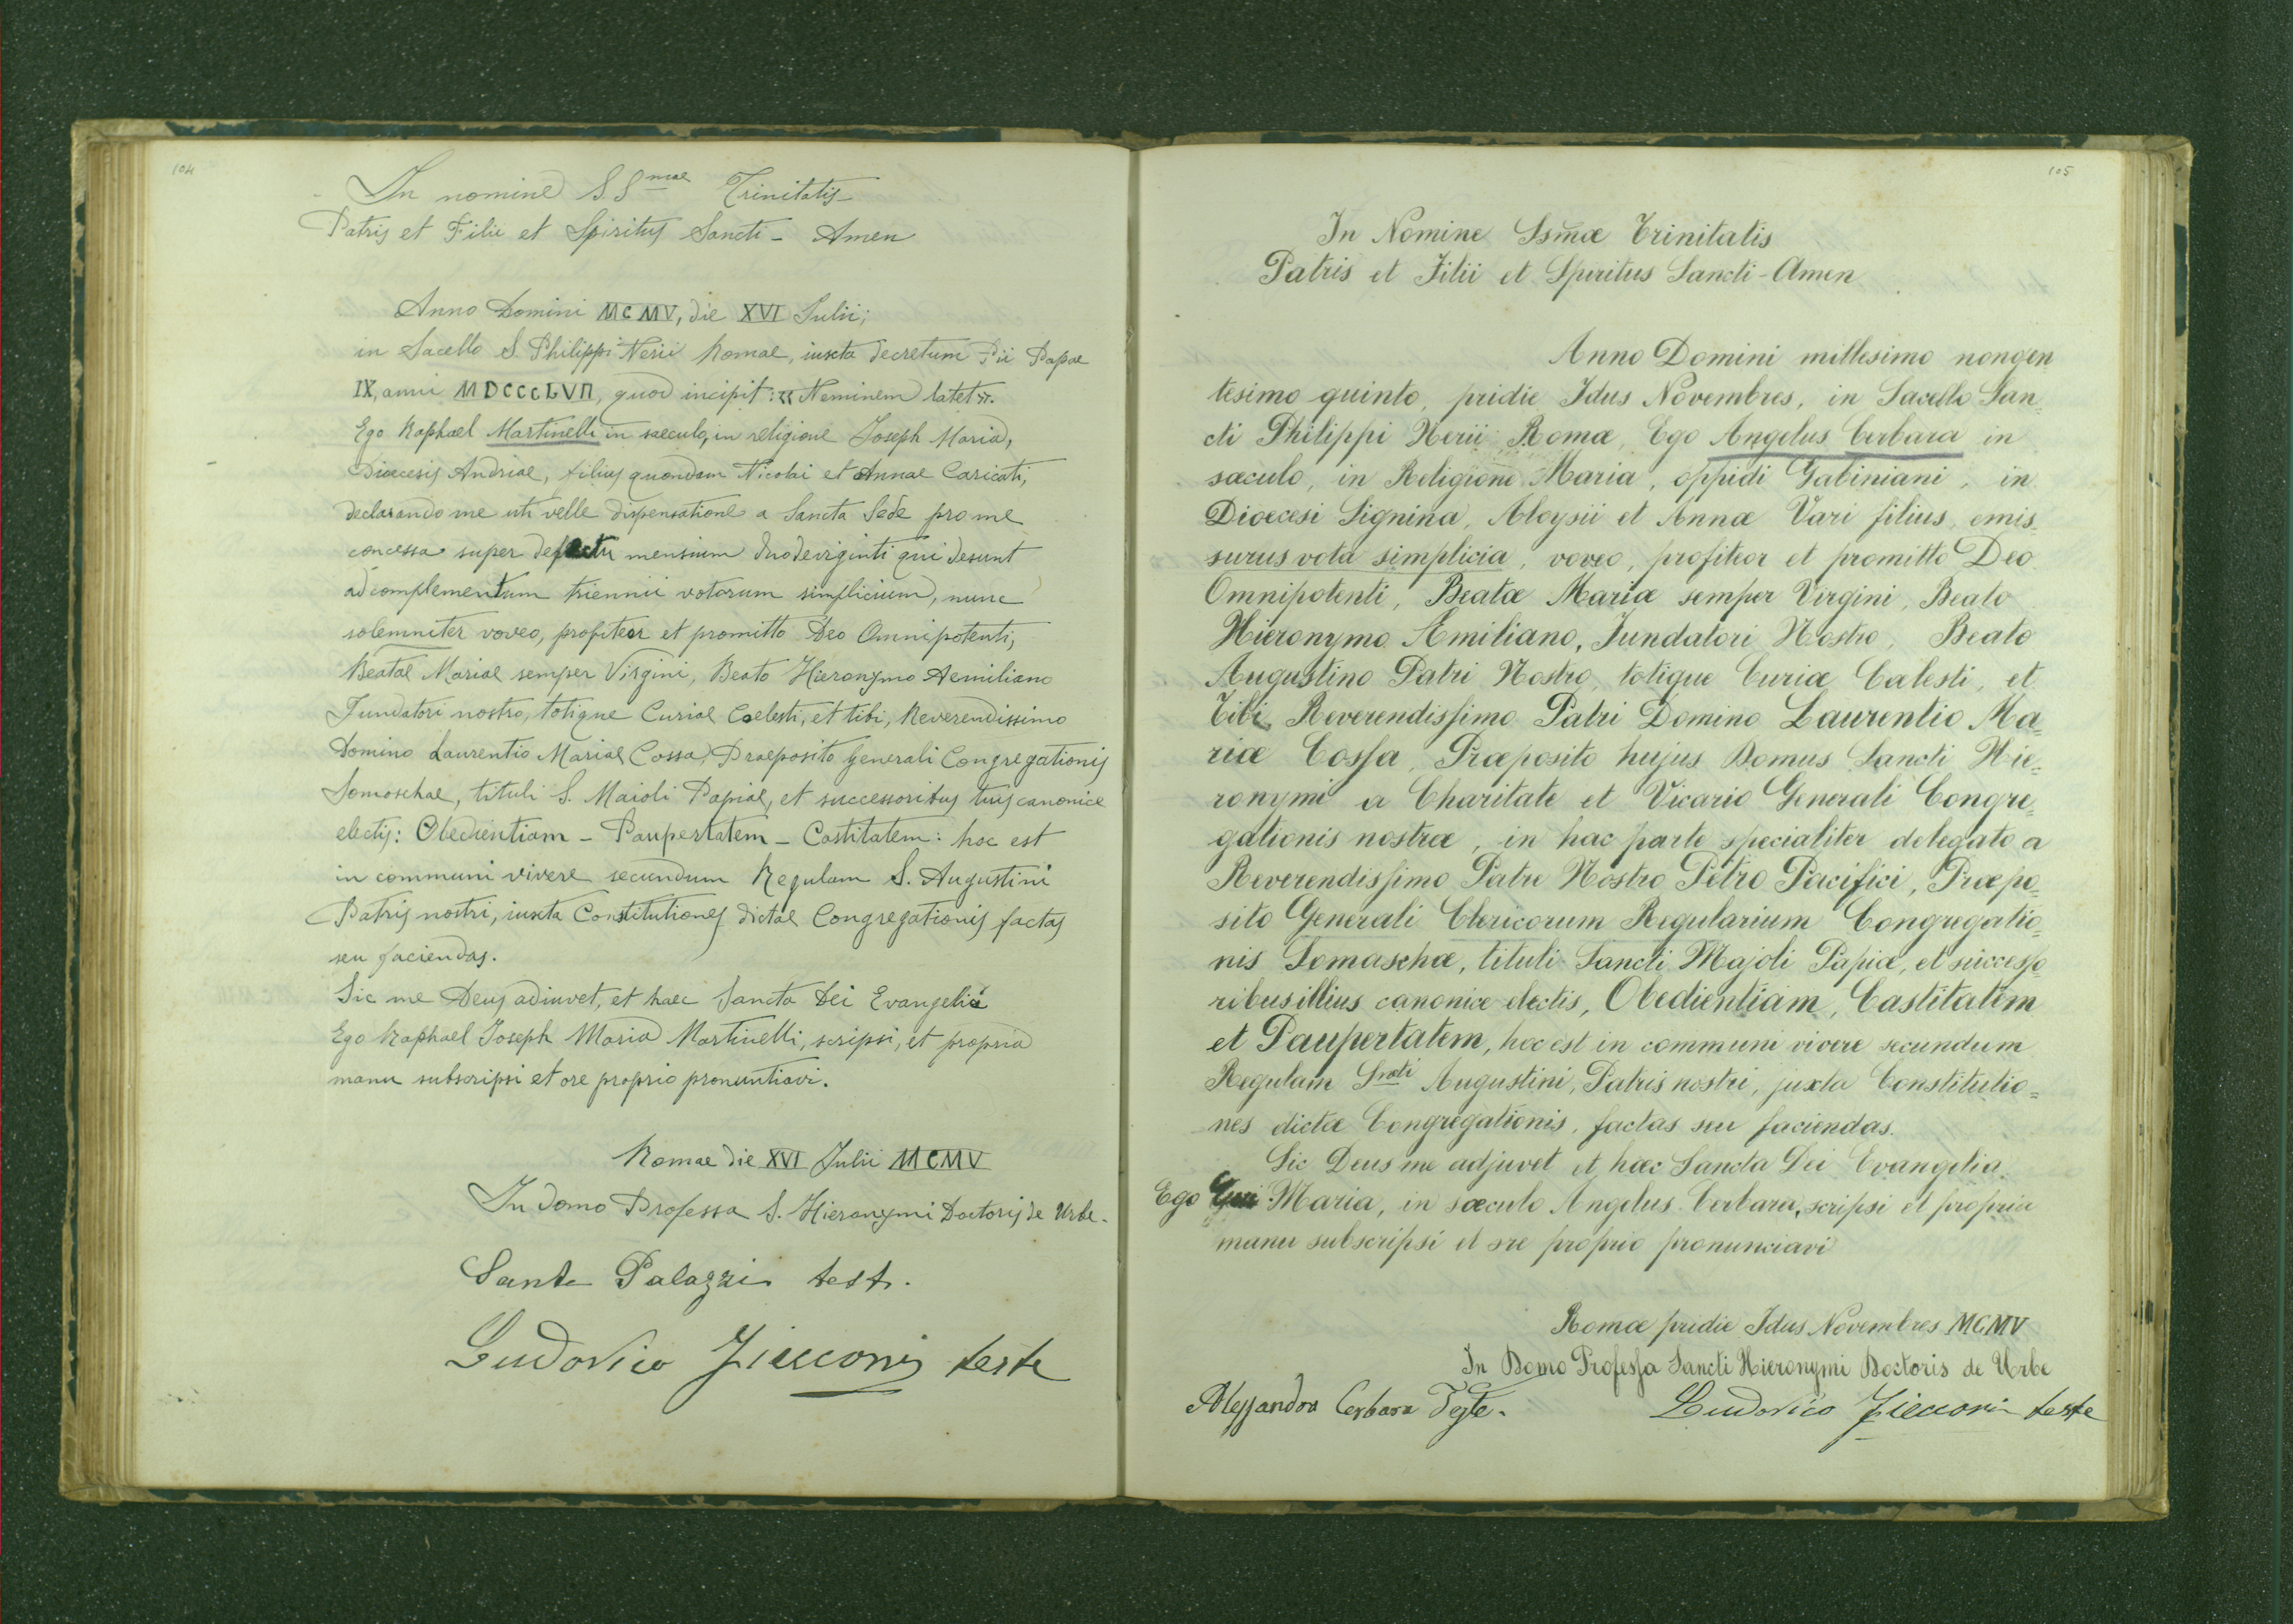 104
In nomine SS^mae Trinitatis
Patris et Filii et Spiritus Sancti - Amen
Anno Domini MCMV, die XVI Julii;
in Sacello S. Philippi Nerii Romae, iuxta decretum Pii Papae
IX, anni MDCCCLVII, quod incipit: « Neminem latet ».
Ego Raphael Martinelli in saeculo, in religione Joseph Maria,
Dioecesis Andriae, filius quondam Nicolai et Annae Caricati,
declarando me uti velle dispensatione a Sancta Sede pro me
concessa super defectu mensium duodeviginti qui desunt
ad complementum triennii votorum simplicium, nunc
solemniter voveo, profiteor et promitto Deo Omnipotenti,
Beatae Mariae semper Virgini, Beato Hieronymo Aemiliano
Fundatori nostro, totique Curiae Coelesti, et tibi, Reverendissimo
Domino Laurentio Mariae Cossa, Praeposito Generali Congregationis
Somaschae, tituli S. Maioli Papiae, et successoribus tuis canonice
electis: Obedientiam - Paupertatem - Castitatem: hoc est
in communi vivere secundum Regulam S. Augustini
Patris nostri, iuxta Constitutiones dictae Congregationis factas
seu faciendas.
Sic me Deus adiuvet, et haec Sancta Dei Evangelia
Ego Raphael Joseph Maria Martinelli, scripsi, et propria
manu subscripsi et ore proprio pronuntiavi.
Romae die XVI Julii MCMV
In domo Professa S. Hieronymi Doctoris de Urbe.
Sante Palazzi test.
Ludovico Zicconi teste
105
In Nomine Ssmæ Trinitatis
Patris et Filii et Spiritus Sancti - Amen
Anno Domini millesimo nongen
tesimo quinto, pridie Idus Novembres, in Sacello San=
cti Philippi Nerii Romæ, Ego Angelus Cerbara in
sæculo, in Religione Maria, oppidi Gabiniani, in
Dioecesi Signina, Aloysii et Annæ Vari filius, emis=
surus vota simplicia, voveo, profiteor et promitto Deo
Omnipotenti, Beatæ Mariæ semper Virgini, Beato
Hieronymo Æmiliano, Fundatori Nostro, Beato
Augustino Patri Nostro, totique Curiæ Cælesti, et
Tibi Reverendissimo Patri Domino Laurentio Ma=
riæ Cossa, Præposito hujus Domus Sancti Hie=
ronymi a Charitate et Vicario Generali Congre=
gationis nostræ, in hac parte specialiter delegato a
Reverendissimo Patre Nostro Petro Pacifici, Præpo=
sito Generali Clericorum Regularium Congregatio=
nis Somaschæ, tituli Sancti Majoli Papiæ, et successo
ribus illius canonice electis, Obedientiam, Castitatem
et Paupertatem, hoc est in communi vivere secundum
Regulam S^ncti Augustini, Patris nostri, juxta Constitutio=
nes dictæ Congregationis, factas seu faciendas.
Sic Deus me adjuvet et hæc Sancta Dei Evangelia.
Ego Maria, in sæculo Angelus Cerbara, scripsi et propria
manu subscripsi et ore proprio pronunciavi
Romæ pridie Idus Novembres MCMV
In Domo Professa Sancti Hieronymi Doctoris de Urbe
Alessandro Cerbara Teste. Ludovico Zicconi teste